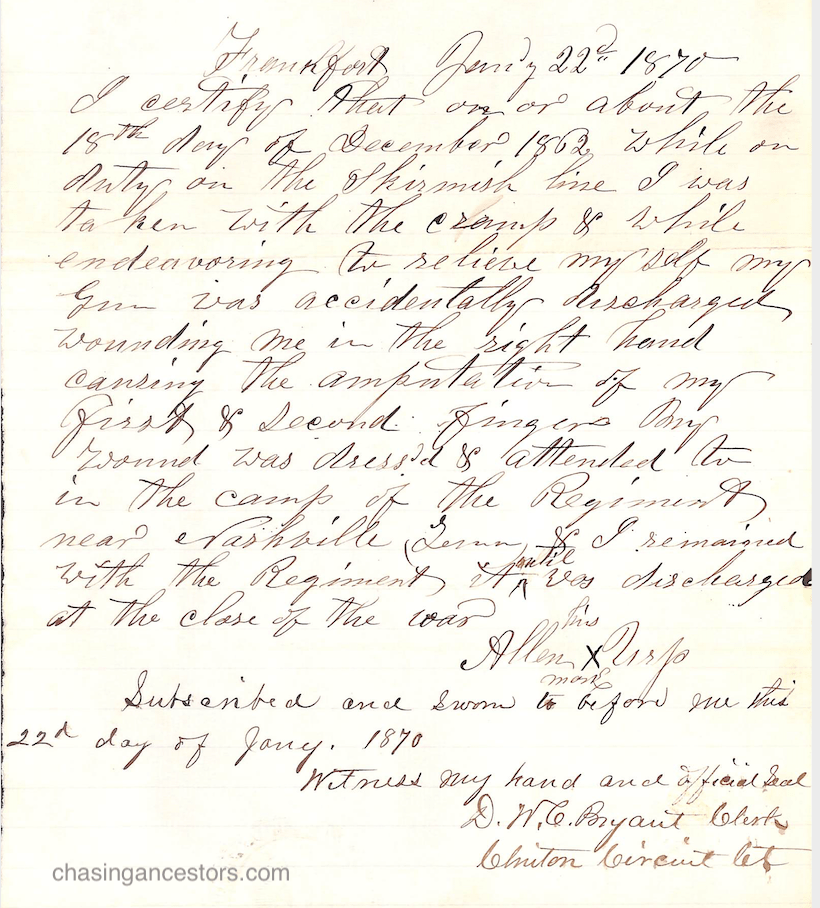 Frankfort Jan'y 22d 1870
I certify that on or about the
18th day of December 1862 while on
duty on the Skirmish line I was
taken with the cramp & while
endeavoring to relieve my self my
Gun was accidentally discharged
wounding me in the right hand
causing the amputation of my
first & second fingers My
wound was dress'd & attended to
in the camp of the Regiment
near Nashville Tenn & I remained
until
with the Regiment it was discharged
at the close of the war
his
Allen X
mark
Subscribed and sworn to before me this
22d day of Jany. 1870
Witness my hand and official seal
D. W. C. Bryant Clerk
Clinton Circuit Ct
chasingancestors.com